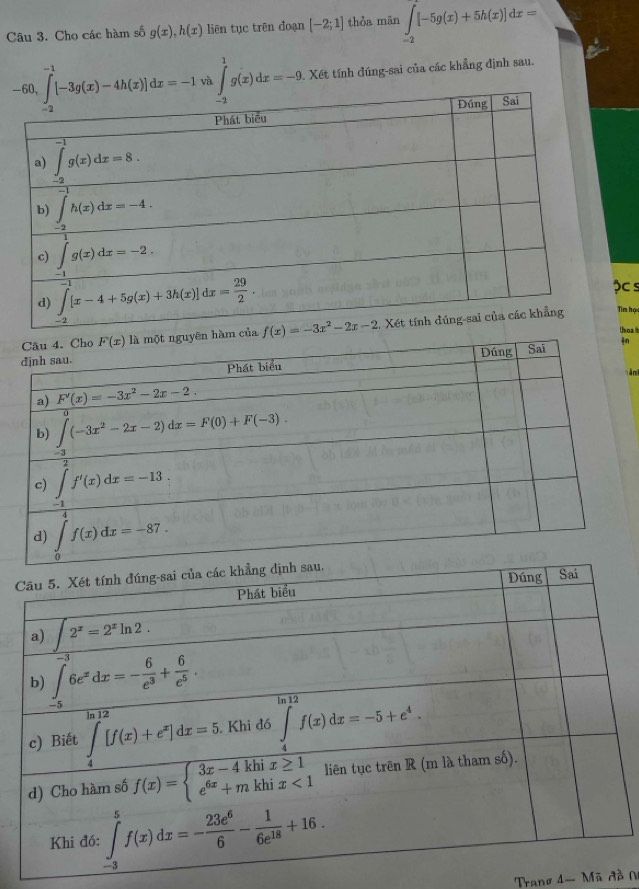 Câu 3. Cho các hàm số g(x), h(x) liên tục trên đoạn [−2; 1] thỏa mãn ∫_{−2}^{−1} [−5g(x) + 5h(x)] dx =
−60, ∫_{−2}^{−1} [−3g(x) − 4h(x)] dx = −1 và ∫_{−2}^{1} g(x) dx = −9. Xét tính đúng-sai của các khẳng định sau.
Phát biểu Đúng Sai
a) ∫_{−2}^{−1} g(x) dx = 8 .
b) ∫_{−2}^{−1} h(x) dx = −4 .
c) ∫_{−1}^{1} g(x) dx = −2 .
d) ∫_{−2}^{−1} [x − 4 + 5g(x) + 3h(x)] dx = 29/2 .
Câu 4. Cho F(x) là một nguyên hàm của f(x) = −3x² − 2x − 2. Xét tính đúng-sai của các khẳng
định sau.
Phát biểu Đúng Sai
a) F′(x) = −3x² − 2x − 2 .
b) ∫_{−3}^{0} (−3x² − 2x − 2) dx = F(0) + F(−3) .
c) ∫_{−1}^{2} f′(x) dx = −13 .
d) ∫_{0}^{4} f(x) dx = −87 .
Câu 5. Xét tính đúng-sai của các khẳng định sau.
Phát biểu Đúng Sai
a) ∫ 2ˣ = 2ˣ ln 2 .
b) ∫_{−5}^{−3} 6eˣ dx = −6/e³ + 6/e⁵ .
c) Biết ∫_{4}^{ln 12} [f(x) + eˣ] dx = 5. Khi đó ∫_{4}^{ln 12} f(x) dx = −5 + e⁴ .
d) Cho hàm số f(x) = { 3x − 4 khi x ≥ 1
e^{6x} + m khi x < 1 liên tục trên ℝ (m là tham số).
Khi đó: ∫_{−3}^{5} f(x) dx = −23e⁶/6 − 1/(6e¹⁸) + 16 .
Trang 4— Mã đề